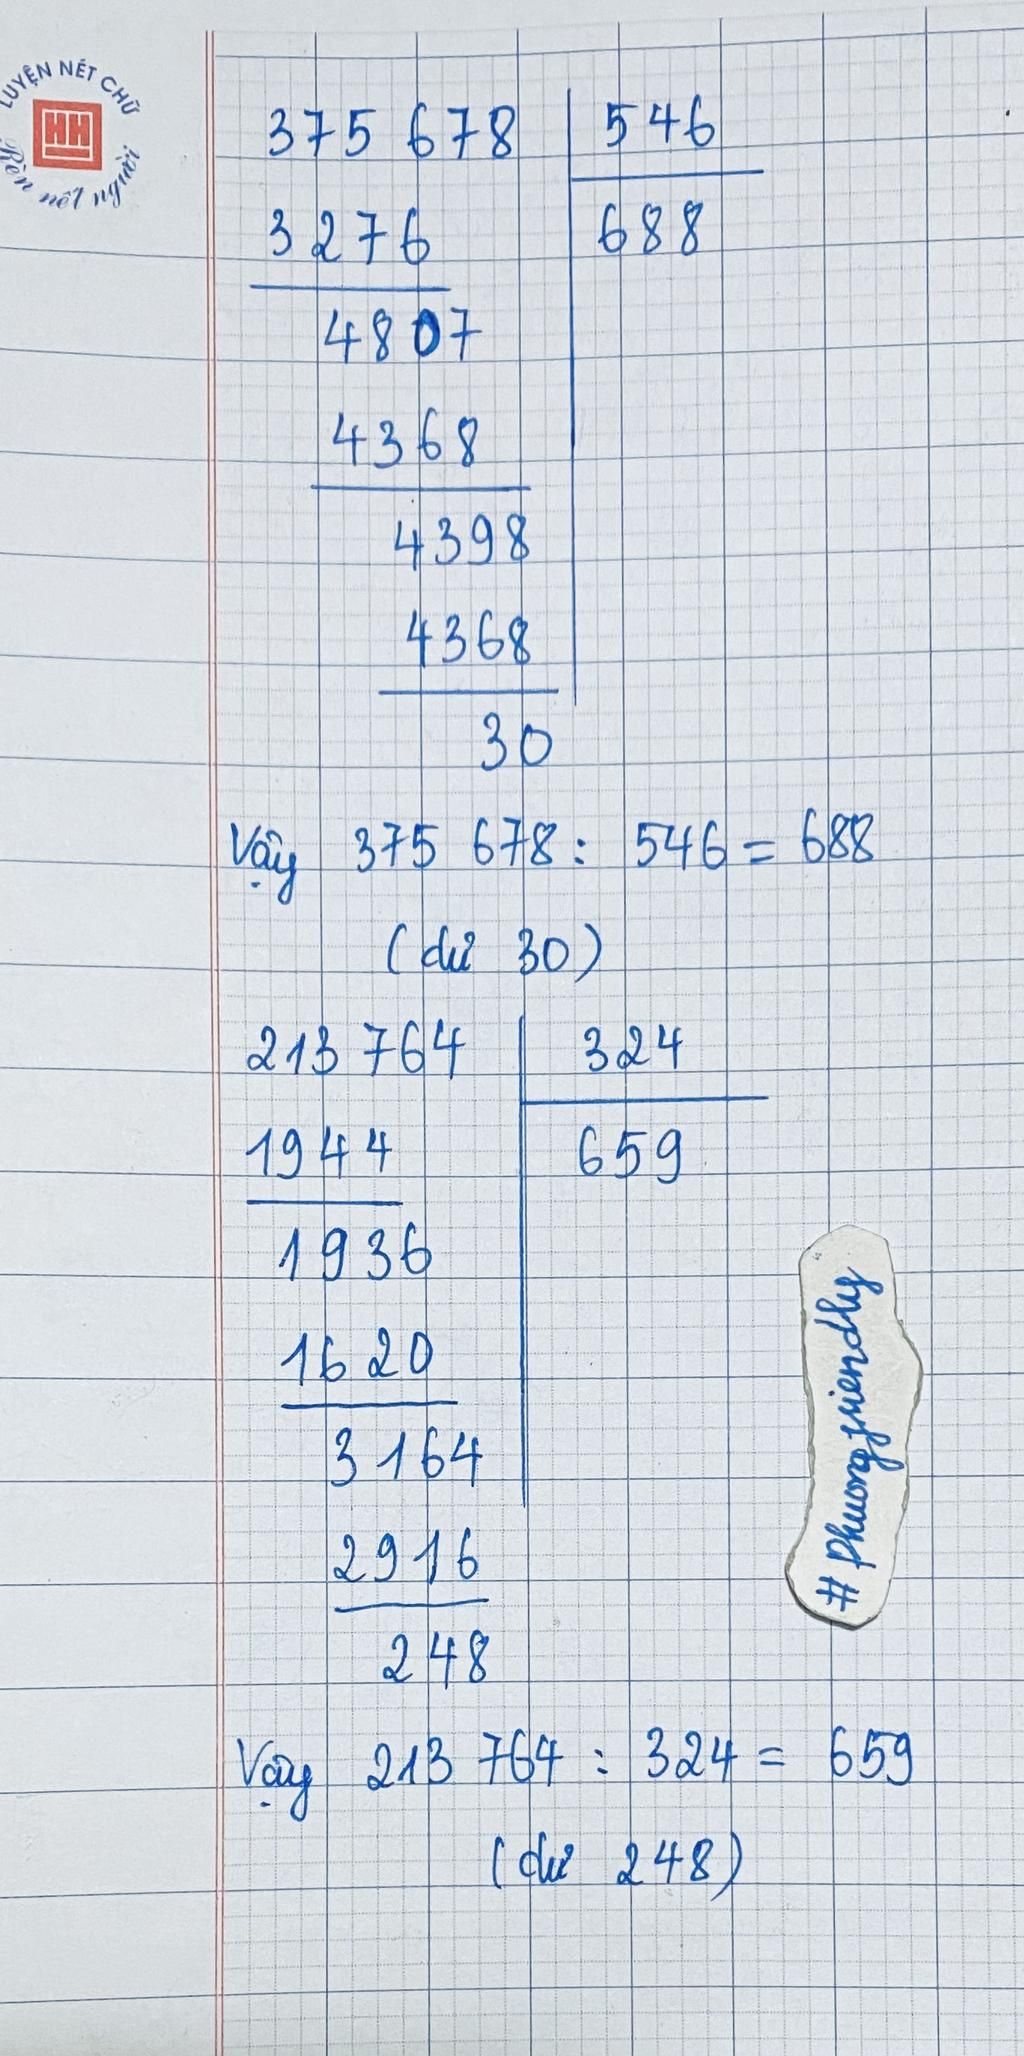 LUYỆN NÉT CHỮ
HH
Rèn nết người
375 678 546
3276 688
4807
4368
4398
4368
30
Vậy 375 678 : 546 = 688
(dư 30)
213 764 324
1944 659
1936
1620
3164
2916
248
Vậy 213 764 : 324 = 659
(dư 248)
#Phuongfriendly